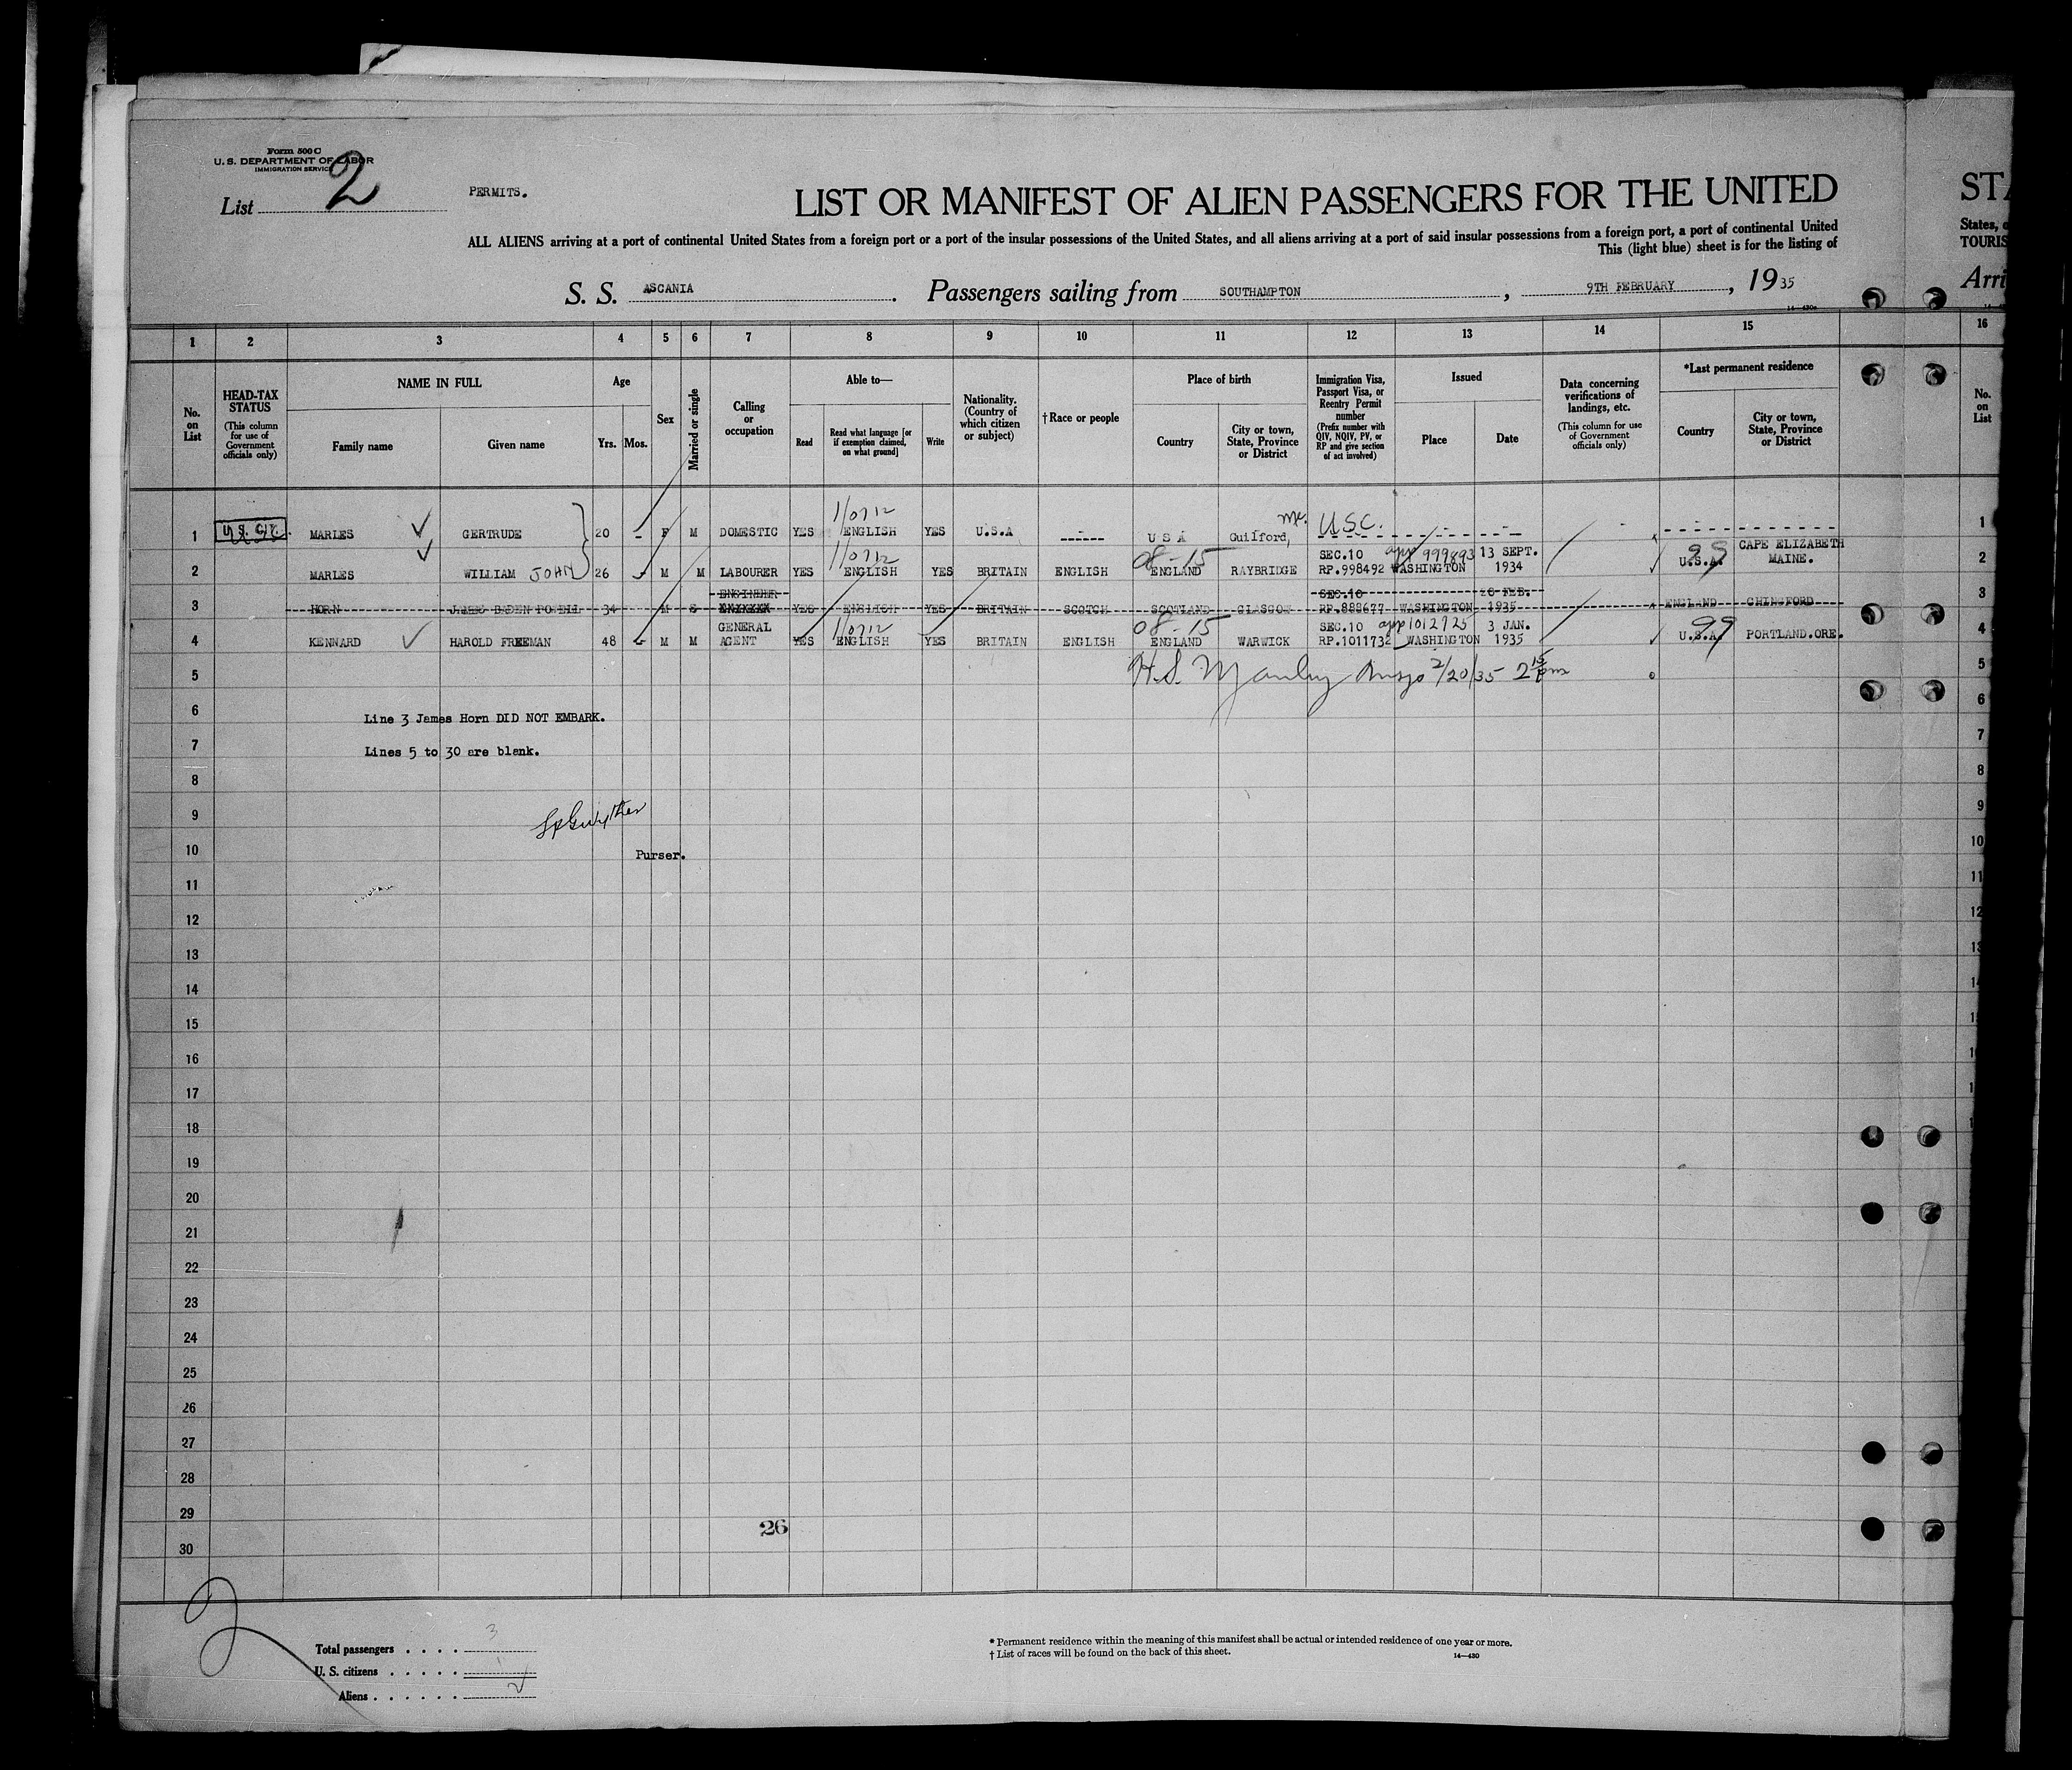 Form 500 C
U. S. DEPARTMENT OF LABOR
IMMIGRATION SERVICE
List 2
PERMITS.
LIST OR MANIFEST OF ALIEN PASSENGERS FOR THE UNITED
ALL ALIENS arriving at a port of continental United States from a foreign port or a port of the insular possessions of the United States, and all aliens arriving at a port of said insular possessions from a foreign port, a port of continental United
This (light blue) sheet is for the listing of
S. S. ASCANIA. Passengers sailing from SOUTHAMPTON, 9TH FEBRUARY, 1935
14—430
STA
States, o
TOURIS
Arri
1 2 3 4 5 6 7 8 9 10 11 12 13 14 15 16
No. on List
HEAD-TAX STATUS (This column for use of Government officials only)
NAME IN FULL
Family name
Given name
Age
Yrs. Mos.
Sex
Married or single
Calling or occupation
Able to—
Read
Read what language [or if exemption claimed, on what ground]
Write
Nationality. (Country of which citizen or subject)
†Race or people
Place of birth
Country
City or town, State, Province or District
Immigration Visa, Passport Visa, or Reentry Permit number (Prefix number with QIV, NQIV, PV, or RP and give section of act involved)
Issued
Place
Date
Data concerning verifications of landings, etc. (This column for use of Government officials only)
*Last permanent residence
Country
City or town, State, Province or District
No. on List
1 U.S. CIT. MARLES GERTRUDE 20 - F M DOMESTIC YES 1/0712 ENGLISH YES U.S.A ------ U S A Guilford, Me. U.S.C. 1
2 MARLES WILLIAM JOHN 26 - M M LABOURER YES 1/0712 ENGLISH YES BRITAIN ENGLISH 08-15 ENGLAND RAYBRIDGE SEC.10 RP.998492 app 999893 WASHINGTON 13 SEPT. 1934 99 U.S.A. CAPE ELIZABETH MAINE. 2
3 HORN JAMES BADEN POWELL 34 M S ENGINEER YES ENGLISH YES BRITAIN SCOTCH SCOTLAND GLASGOW SEC.10 RP.888677 WASHINGTON 26 FEB. 1935 ENGLAND CHINGFORD 3
4 KENNARD HAROLD FREEMAN 48 - M M GENERAL AGENT YES 1/0712 ENGLISH YES BRITAIN ENGLISH 08-15 ENGLAND WARWICK SEC.10 RP.1011732 app 1012725 WASHINGTON 3 JAN. 1935 99 U.S.A. PORTLAND.ORE. 4
5 H.S. Manley 2/20/35 2 15 pm 5
6 Line 3 James Horn DID NOT EMBARK. 6
7 Lines 5 to 30 are blank. 7
8 8
9 9
10 Purser. 10
11 11
12 12
13 13
14 14
15
16
17
18
19
20
21
22
23
24
25
26
27
28
29 26
30
2
Total passengers . . . . 3
U. S. citizens . . . . . 1
Aliens . . . . . . 2
* Permanent residence within the meaning of this manifest shall be actual or intended residence of one year or more.
† List of races will be found on the back of this sheet.
14—430